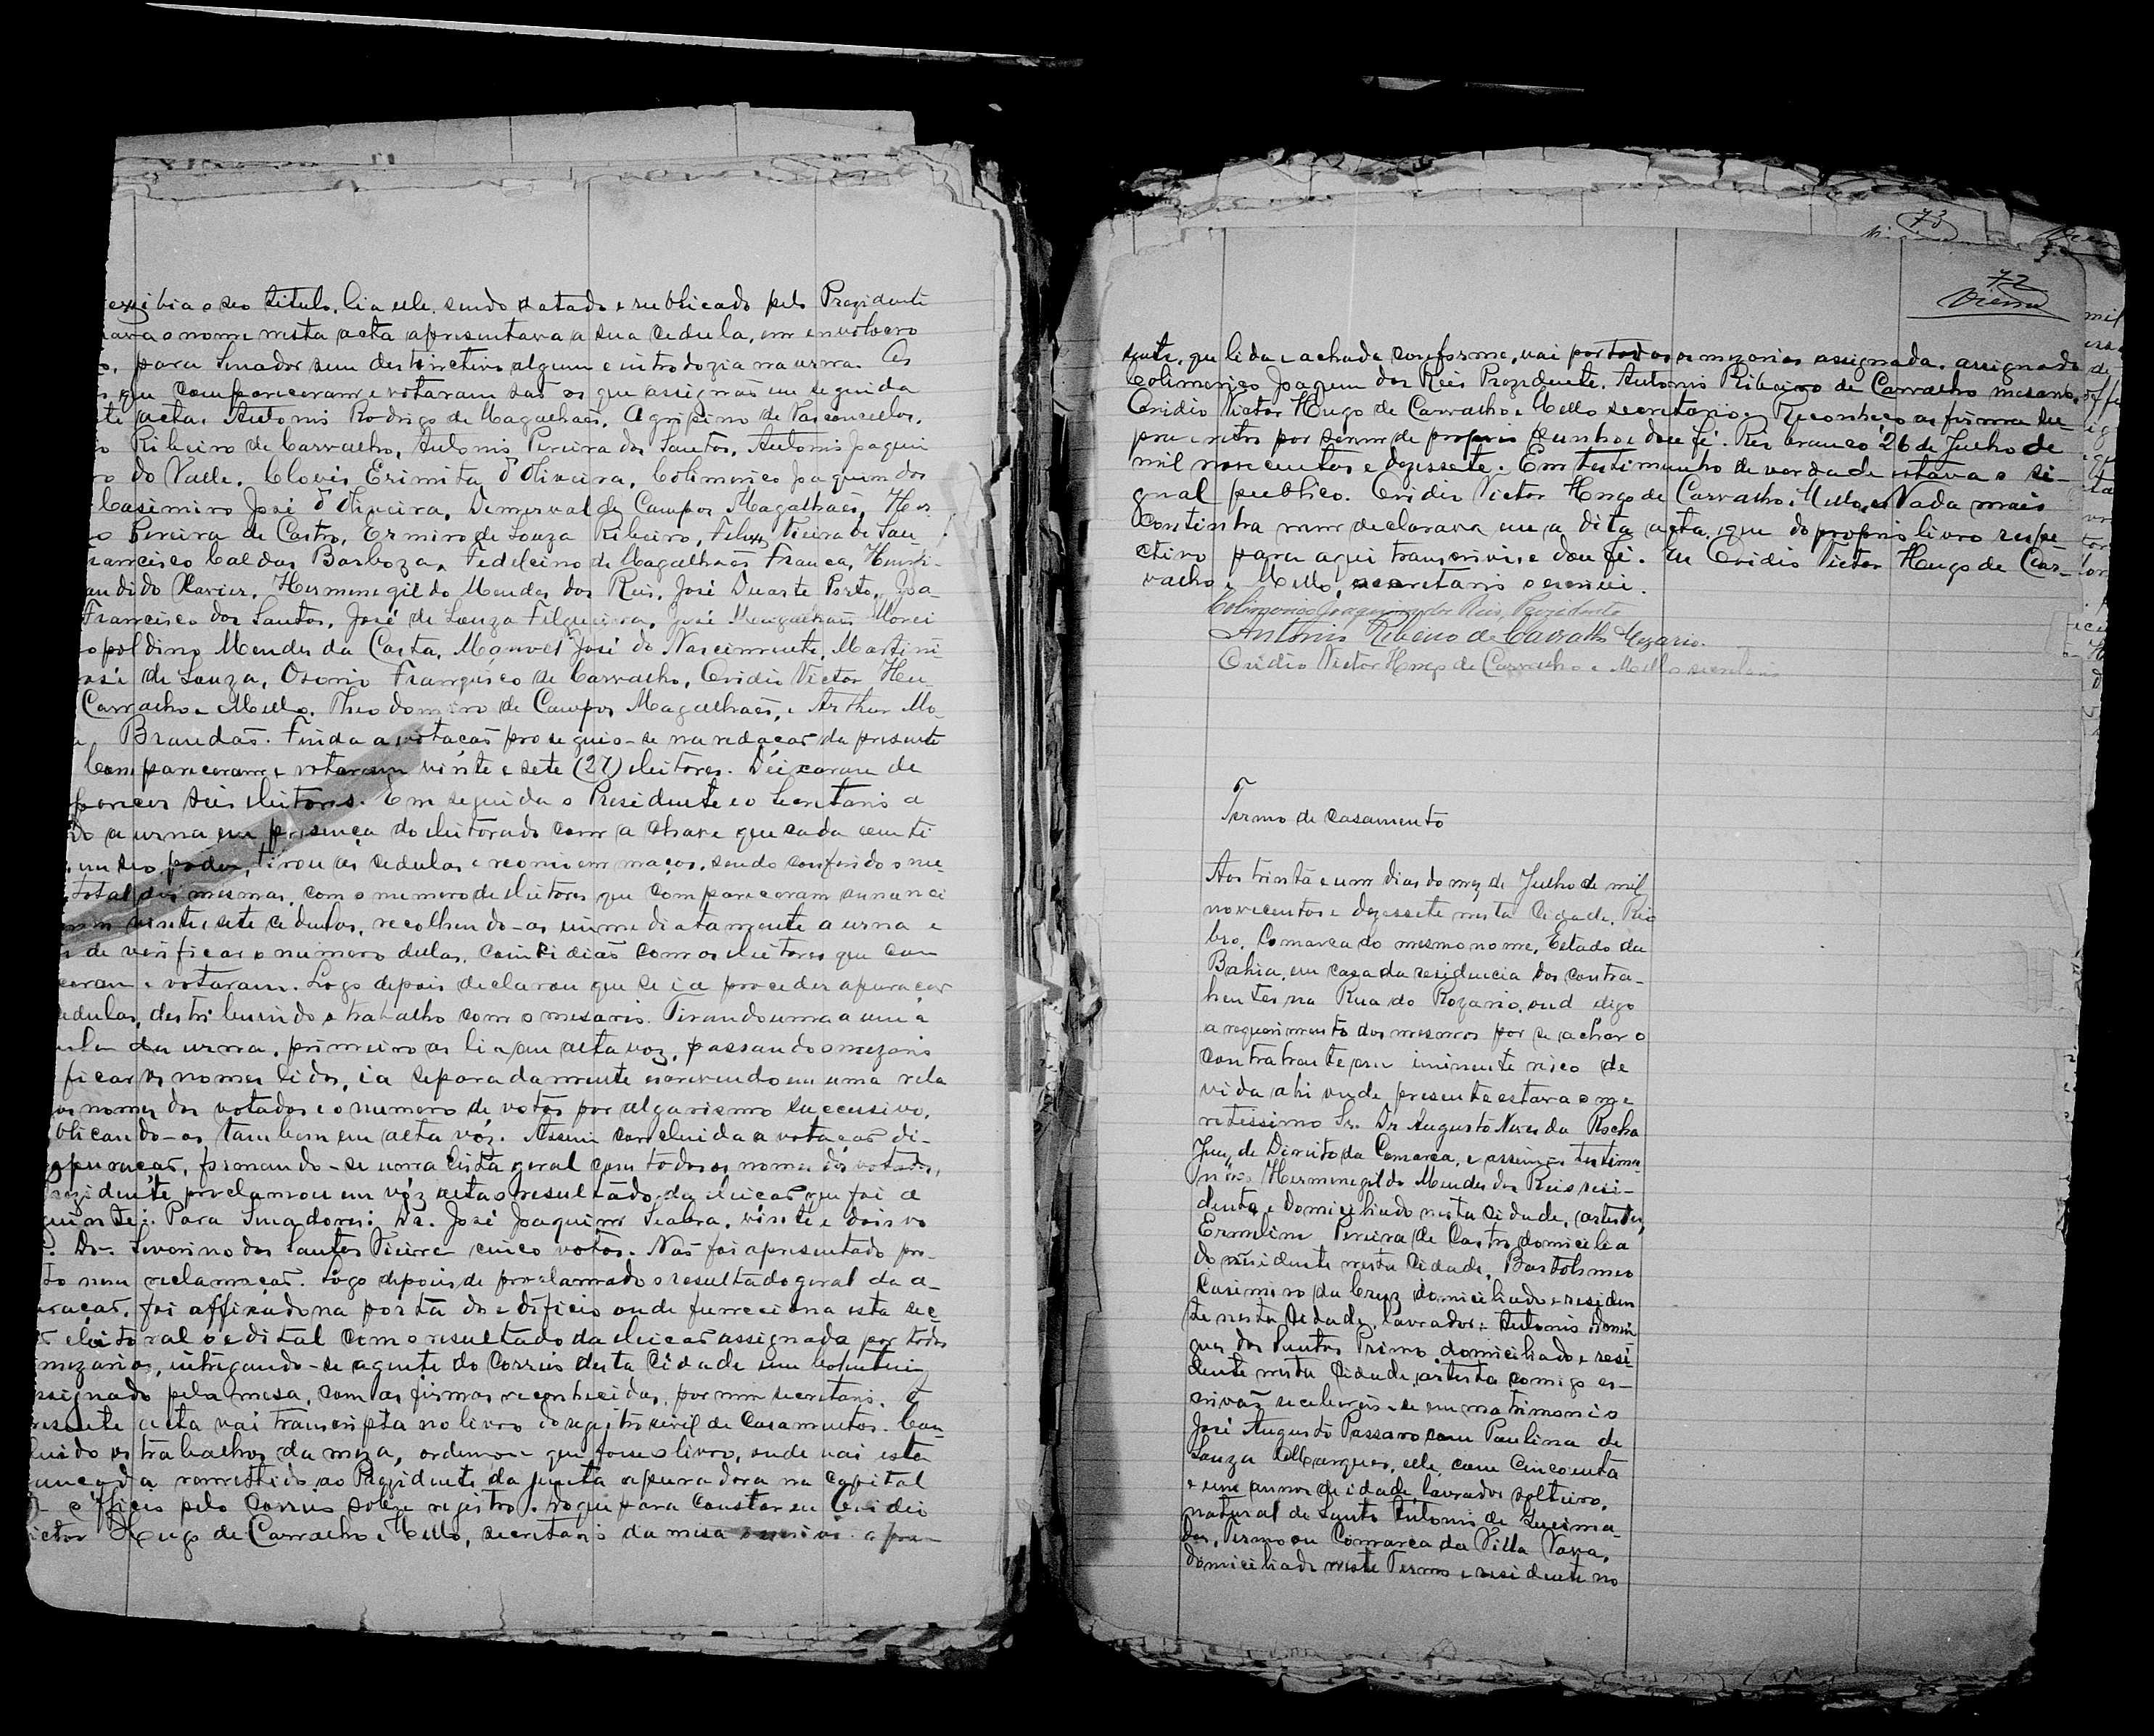 exibia o seo titulo, lia elle, sendo datado e rublicado pelo Prezidente
o nome nesta acta apresentava a sua cedula, em envolvero
para Senador sem destinctivo algum e introdozia na urna. Os
que compareceram e votaram são os que assignão em seguida
acta. Antonio Rodrigo de Magalhaes, Agripino de Vasconcellos,
Ribeiro de Carvalho, Antonio Pereira dos Santos, Antonio Joaquim
do Valle, Clovis Erimita d'Oliveira, Colimerico Joaquim dos
Casimiro José d'Oliveira, Demerval de Campos Magalhães, Her
Pereira de Castro, Ermiro de Souza Ribeiro, Felix Vieira de San
rancisco Caldas Barboza, Fedelcino de Magalhães Franca,
andido Xavier, Hermenegildo Mendes dos Reis, José Duarte Porto, Joa-
Francisco dos Santos, José de Souza Filgueira, José Magalhães Morei
opoldino Mendes da Costa, Manoel José do Nascimento, Martini
osé de Souza, Osorio Francisco de Carvalho, Ovidio Victor Hu-
Carvalho e Mello, Theodomiro de Campos Magalhães, e Arthur Mo-
Brandão. Finda a votacão proseguio-se na redacão da presente
Compareceram e votaram vinte e sete (27) eleitores. Deixaram de
parecer seis eleitores. Em seguida o Presidente e o Secretario a
do a urna em presenca do eleitorado com a chave que cada um ti
em seo poder, tirou as cedulas e reonio em maços, sendo conferido o nu-
total das mesmas, com o numero de eleitores que compareceram
vinte e sete cedulas, recolhendo-as immediatamente a urna e
de verificar o numero dellas, coincidião com os eleitores que com
ceram e votaram. Logo depois declarou que se ia proceder apuracão
edulas, destribuindo o trabalho com o mesario. Tirando uma a uma
da urna, primeiro as lia em alta voz, passando o mezario
ficar os nomes lidos, ia separadamente escrevendo em uma rela
os nomes dos votados e o numero de votos por algarismo successivo,
blicando-os tambem em alta vóz. Assim concluida a votacão di-
apuracão, formando-se uma lista geral com todos os nomes dos votados,
rezidente proclamou em vóz alta o resultado da eleicão que foi o
guinte: Para Senadores: Dr. José Joaquim Seabra, vinte e dois vo
Dr. Severino dos Santos Vieira cinco votos. Não foi apresentado pro-
to nem reclamacão. Logo depois de proclamado o resultado geral da a-
uracão, foi affixado na porta do edificio onde funcciona esta sec
eleitoral o edital com o resultado da eleicão assignada por todos
mezarios, intregando-se agente do Correio desta Cidade um boletim
ssignado pela mesa, com as firmas reconhecidas, por mim secretario. A
resente acta vai transcripta no livro do registro civil de Casamentos. Con-
luido os trabalhos da meza, ordenou que fosse o livro, onde vai esta
lancada remettido ao Prezidente da junta apuradora na capital
officio pelo Correio sobre registro. Do que para constar eu Ovidio
ictor Hugo de Carvalho e Mello, secretario da mesa escrivi a pre-
73
72
Vieira
sente, que lida e achada conforme, vai por todos os mezarios assignada. assignado
Colimerico Joaquim dos Reis Prezidente. Antonio Ribeiro de Carvalho mesario.
Ovidio Victor Hugo de Carvalho e Mello secretario. Reconheço as firmas su-
pra e retro por serem de proprio punho e dou fé. Rio branco 26 de Julho de
mil novecentos e dezessete. Em testimunho de verdade estava o si-
gnal publico. Ovidio Victor Hugo de Carvalho e Mello. Nada mais
continha nem declarava em a dita acta, que do proprio livro respe-
ctivo para aqui transcrivi e dou fé. Eu Ovidio Victor Hugo de Car-
valho e Mello, secretario o escrivi.
Colimerico Joaquim dos Reis, Prezidente
Antonio Ribeiro de Carvalho Mezario.
Ovidio Victor Hugo de Carvalho e Mello secretario
Termo de Casamento
Aos trinta e um dias do mez de Julho de mil
novecentos e dezessete nesta Cidade, Rio
bro, Comarca do mesmo nome, Estado da
Bahia, em caza da residencia dos contra-
hentes na Rua do Rozario, ond digo
a requerimento dos mesmos por se achar o
contrahente em iminente risco de
vida ahi onde presente estava o me
retissimo Sr. Dr Augusto Neves da Rocha
Juiz de Direito da Comarca, e assignas testimu
nhas Hermenegildo Mendes dos Reis resi-
dente e domiciliado nesta cidade, (artista),
Ermelino Pereira de Castro domicilia
do residente nesta Cidade, Bartolomeo
Casimiro da Cruz domiciliado e residen
te nesta Cidade, lavrador e Antonio Domin
gues dos Santos Primo domiciliado e resi
dente nesta Cidade, artista comigo es-
crivão receberão-se em matrimonio
José Augusto Passaro com Paulina de
Souza Marques, elle com cincoenta
e um annos de idade, lavrador solteiro,
natural de Santo Antonio de Queima-
das, Termo ou Comarca da Villa Nova,
domiciliado neste Termo e residente no